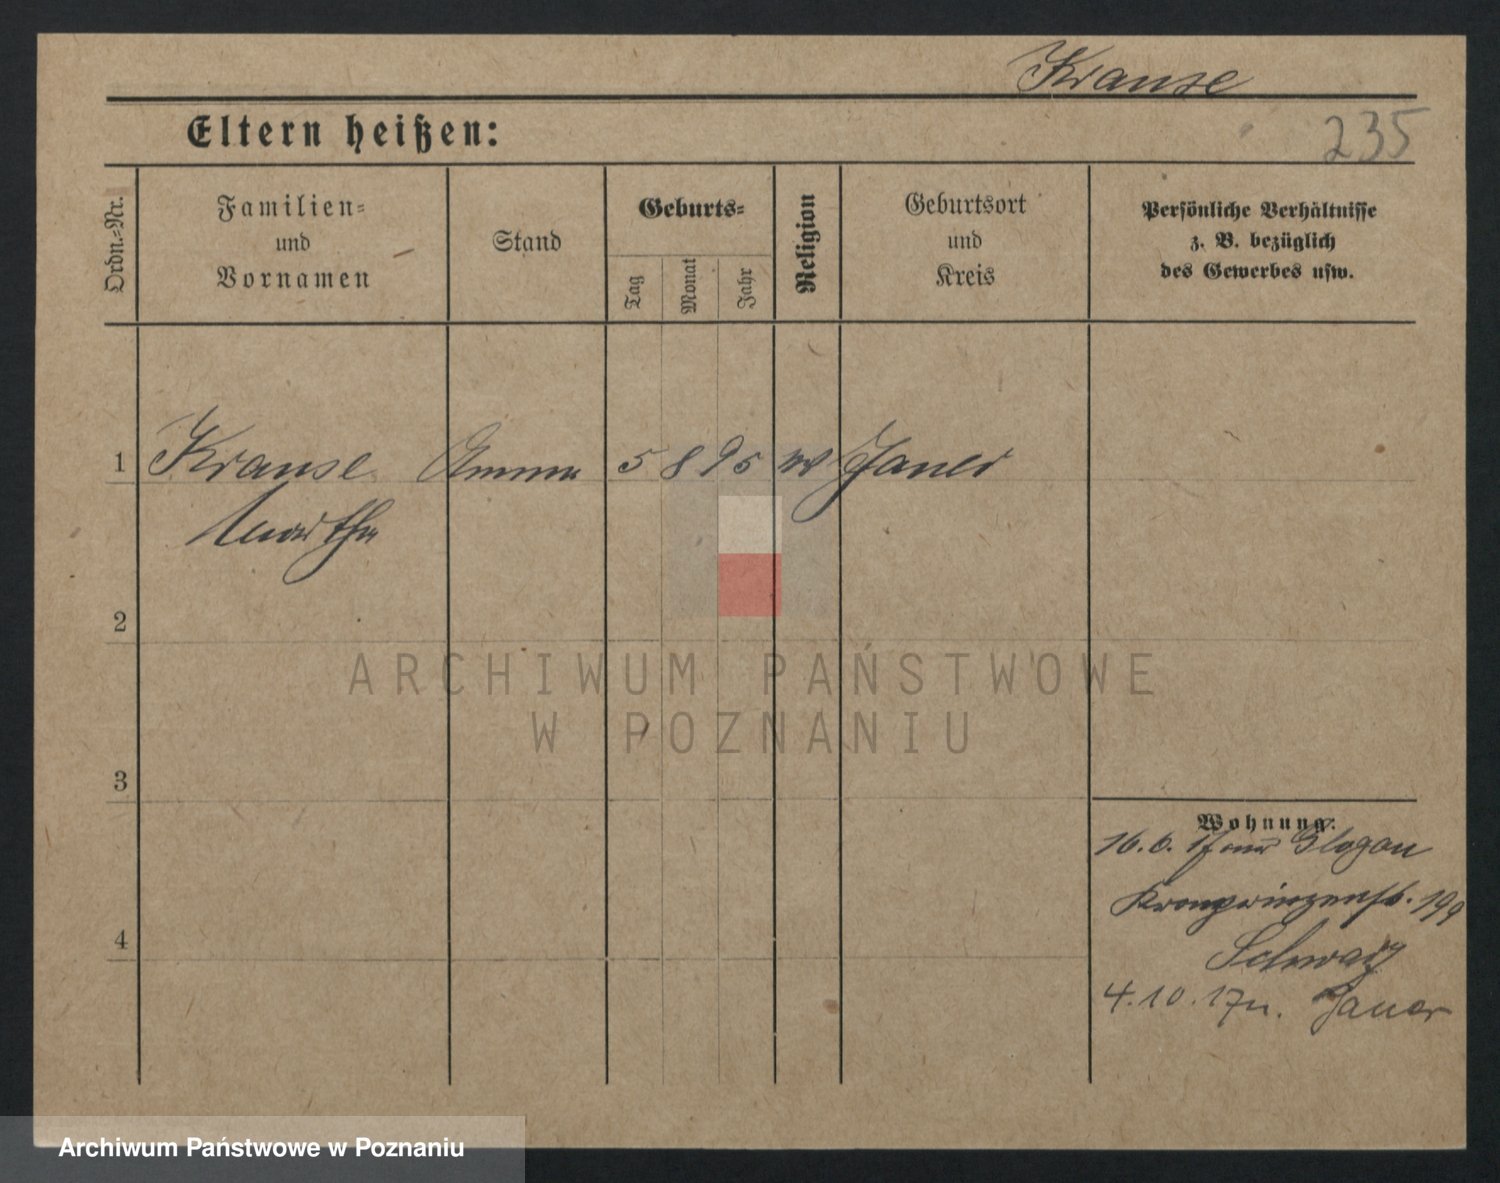 Krause
Eltern heißen:
235
Ordn.-Nr.
Familien-
und
Vornamen
Stand
Geburts-
Tag
Monat
Jahr
Religion
Geburtsort
und
Kreis
Persönliche Verhältnisse
z. B. bezüglich
des Gewerbes usw.
1 Krause Amme 5 8 95 Jauer
Martha
2
ARCHIWUM PAŃSTWOWE
W POZNANIU
3
Wohnung:
16.6.17 Glogau
Kronprinzenstr. 19
4
4.10.17 n. Jauer
Archiwum Państwowe w Poznaniu